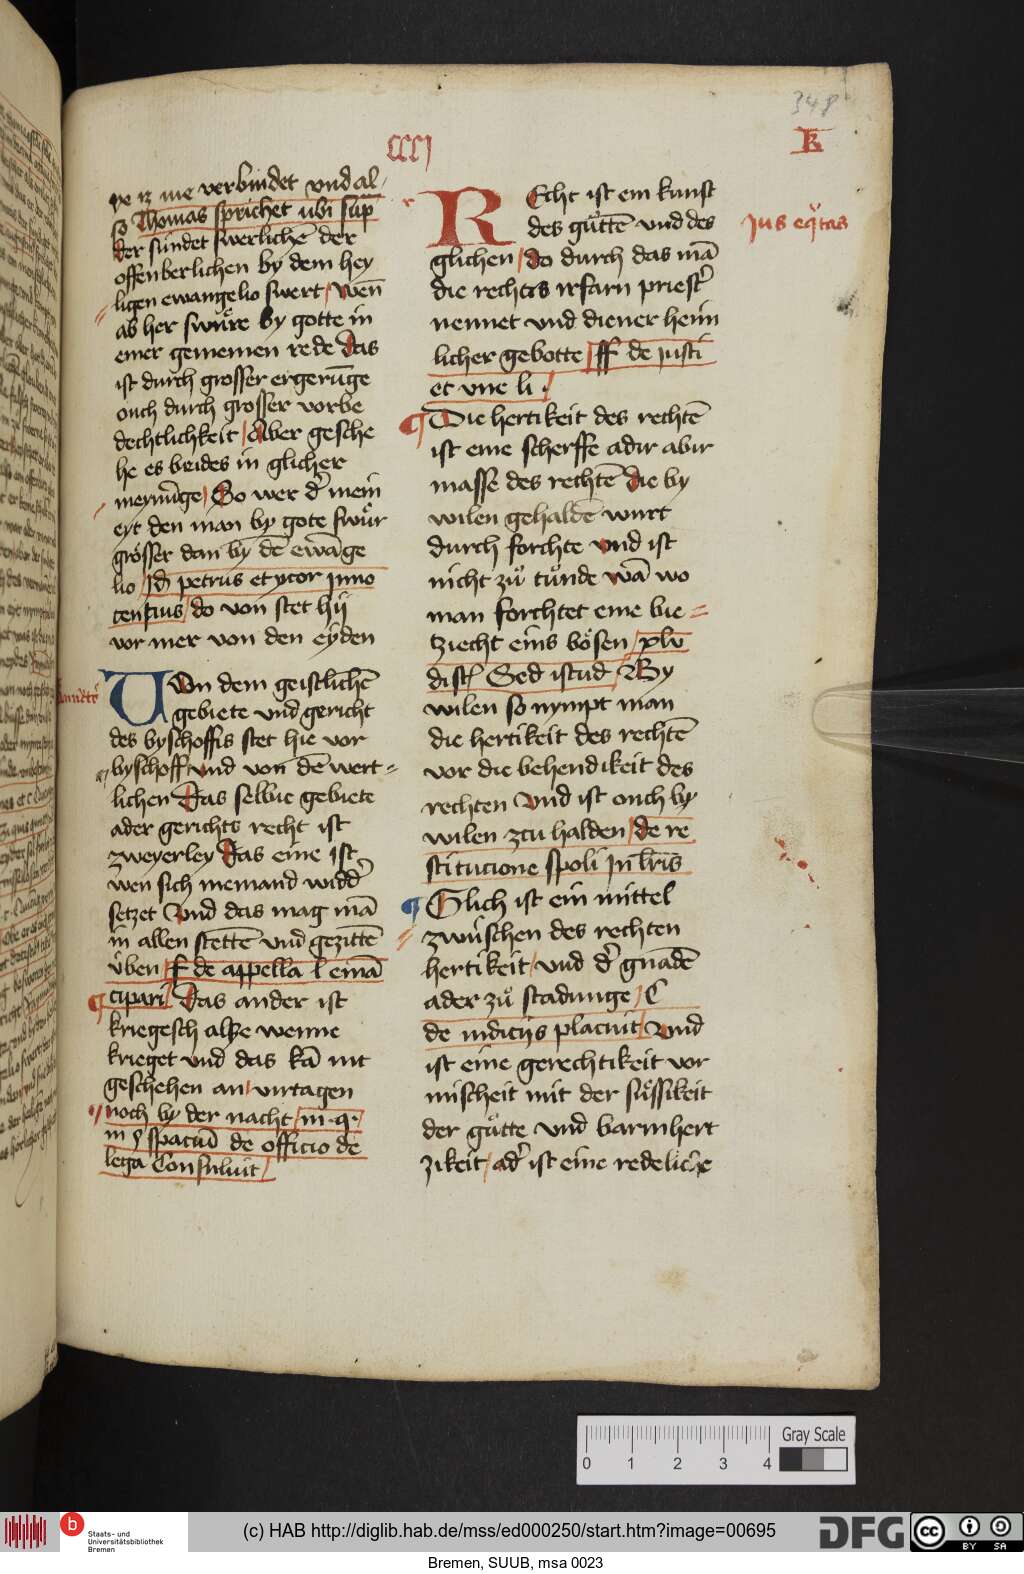 348
K
CCCI
ꝑe iz me verbindet vnd al
so Thomas sprichet ubi sup̄
der sundet swerlichē der
offenberlichen by dem hey
ligen ewangelio swert / Wen̄
ab her swůre by gotte in
einer gemeinen rede das
ist durch grosser ergerūge
ouch durch grosser vorbe
dechtlichkeit / Aber gesche
he es beides in glicher
meynūge / So wer d' mein
eyt den man by gote swůr
grósser dan by dē ewāge
lio / Id petrus et ycor Inno
cencius / do von stet hij
vor mer von den eyden
Von dem geistlichē
gebiete vnd gericht
des byschoffis stet hie vor
byschoff vnd von dē wert=
lichen Das selbie gebiete
ader gerichts recht ist
zweyerley Das eine ist
wen sich niemand widd'
setzet Vnd das mag mā
in allen stettē vnd gezittē
úben / ff de appella l emā
cipari / Das ander ist
kriegesch alße wenne
krieget vnd das kā nit
geschehen an virtagen
noch by der nacht / iii · q ·
spaciū de officio de
lega Consuluit /
REcht ist ein kunst
des gůttē vnd des
Jus eq̇tas
glichen / do durch das mā
die rechts irfarn priest'
nennet vnd diener heim
licher gebotte / ff de iusti
et iure li /
Die hertikeit des rechtē
ist eine scherffe adir abir
masse des rechtē die by
wilen gehaldē wirt
durch forchte vnd ist
nicht zů tůnde wā wo
man forchtet eine bie=
tziecht eins bósen / xlv
dist Sed istud / By
wilen so nympt man
die hertikeit des rechtē
vor die behendikeit des
rechten Vnd ist ouch by
wilen zcu halden / de re
stitucione spoli In lr̄is
Glich ist ein mittel
zwischen des rechten
hertikeit / vnd d' gnadē
ader zů stadunge / C
de iudicijs placuit / Vnd
ist eine gerechtikeit vor
mischeit mit der sůssikeit
der gůtte vnd barmhert
zikeit / ad' ist eine redeliche
Gray Scale
0 1 2 3 4
b
Staats- und
Universitätsbibliothek
Bremen
(c) HAB http://diglib.hab.de/mss/ed000250/start.htm?image=00695
DFG
cc
BY SA
Bremen, SUUB, msa 0023